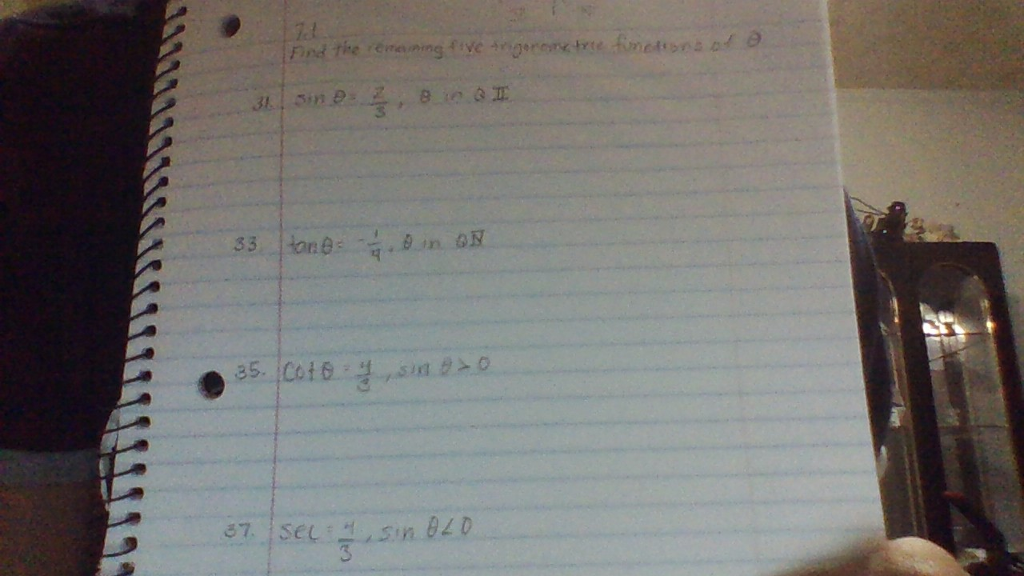 7.1
Find the remaining five trigonometric functions of θ
31. sin θ = 2/3, θ in Q II
33. tan θ = -1/4, θ in Q IV
35. cot θ = 4/3, sin θ > 0
37. sec = 4/3, sin θ < 0